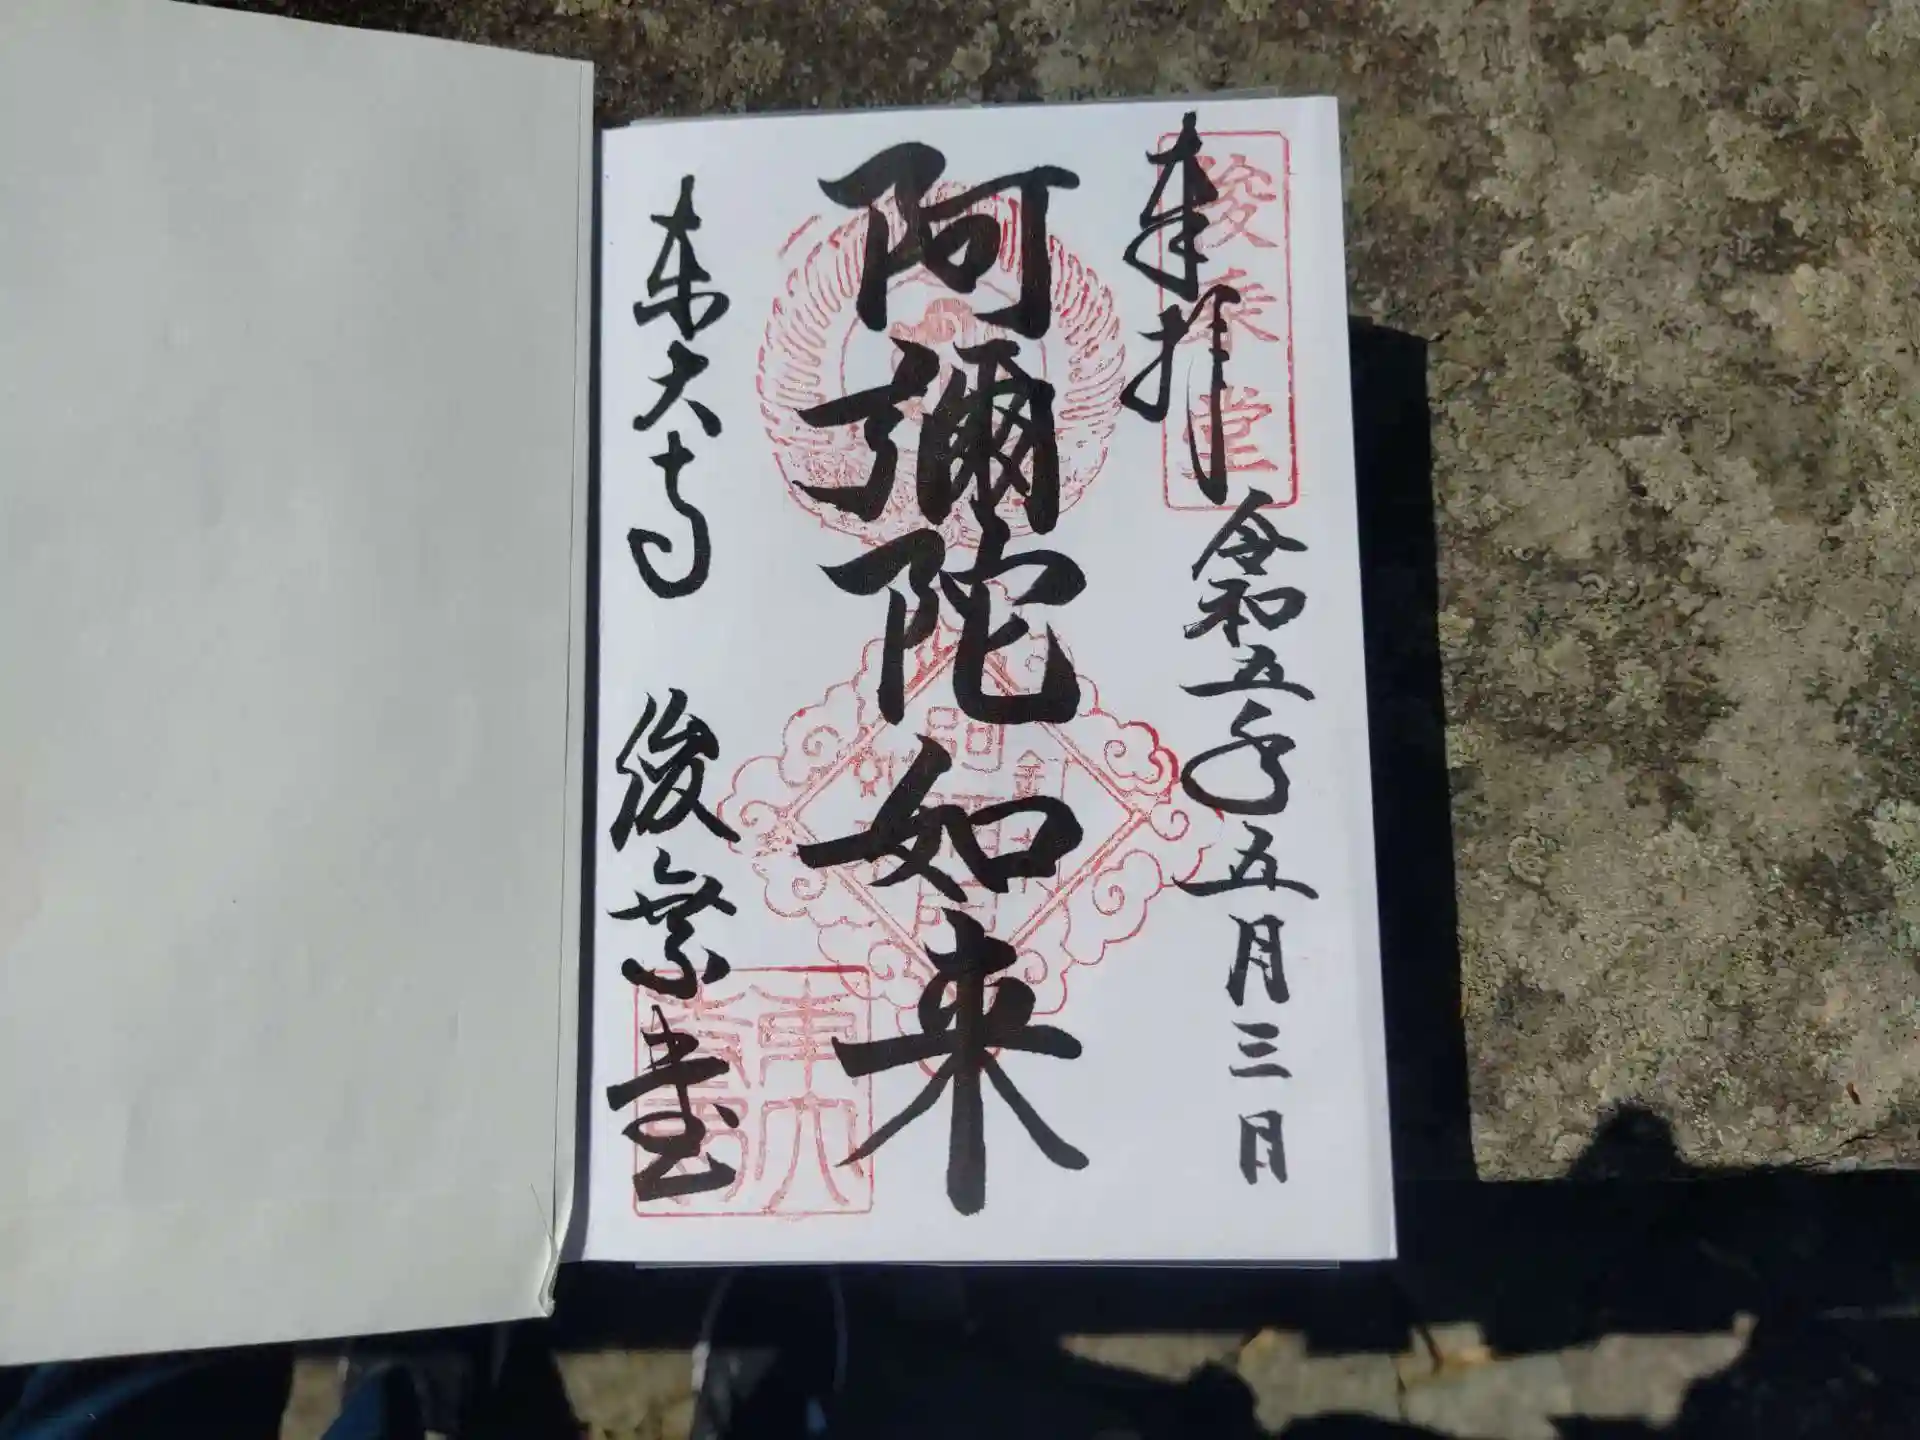 俊乗堂
奉拝
令和五年五月三日
阿彌陀如来
東大寺 俊乗堂
東大寺印